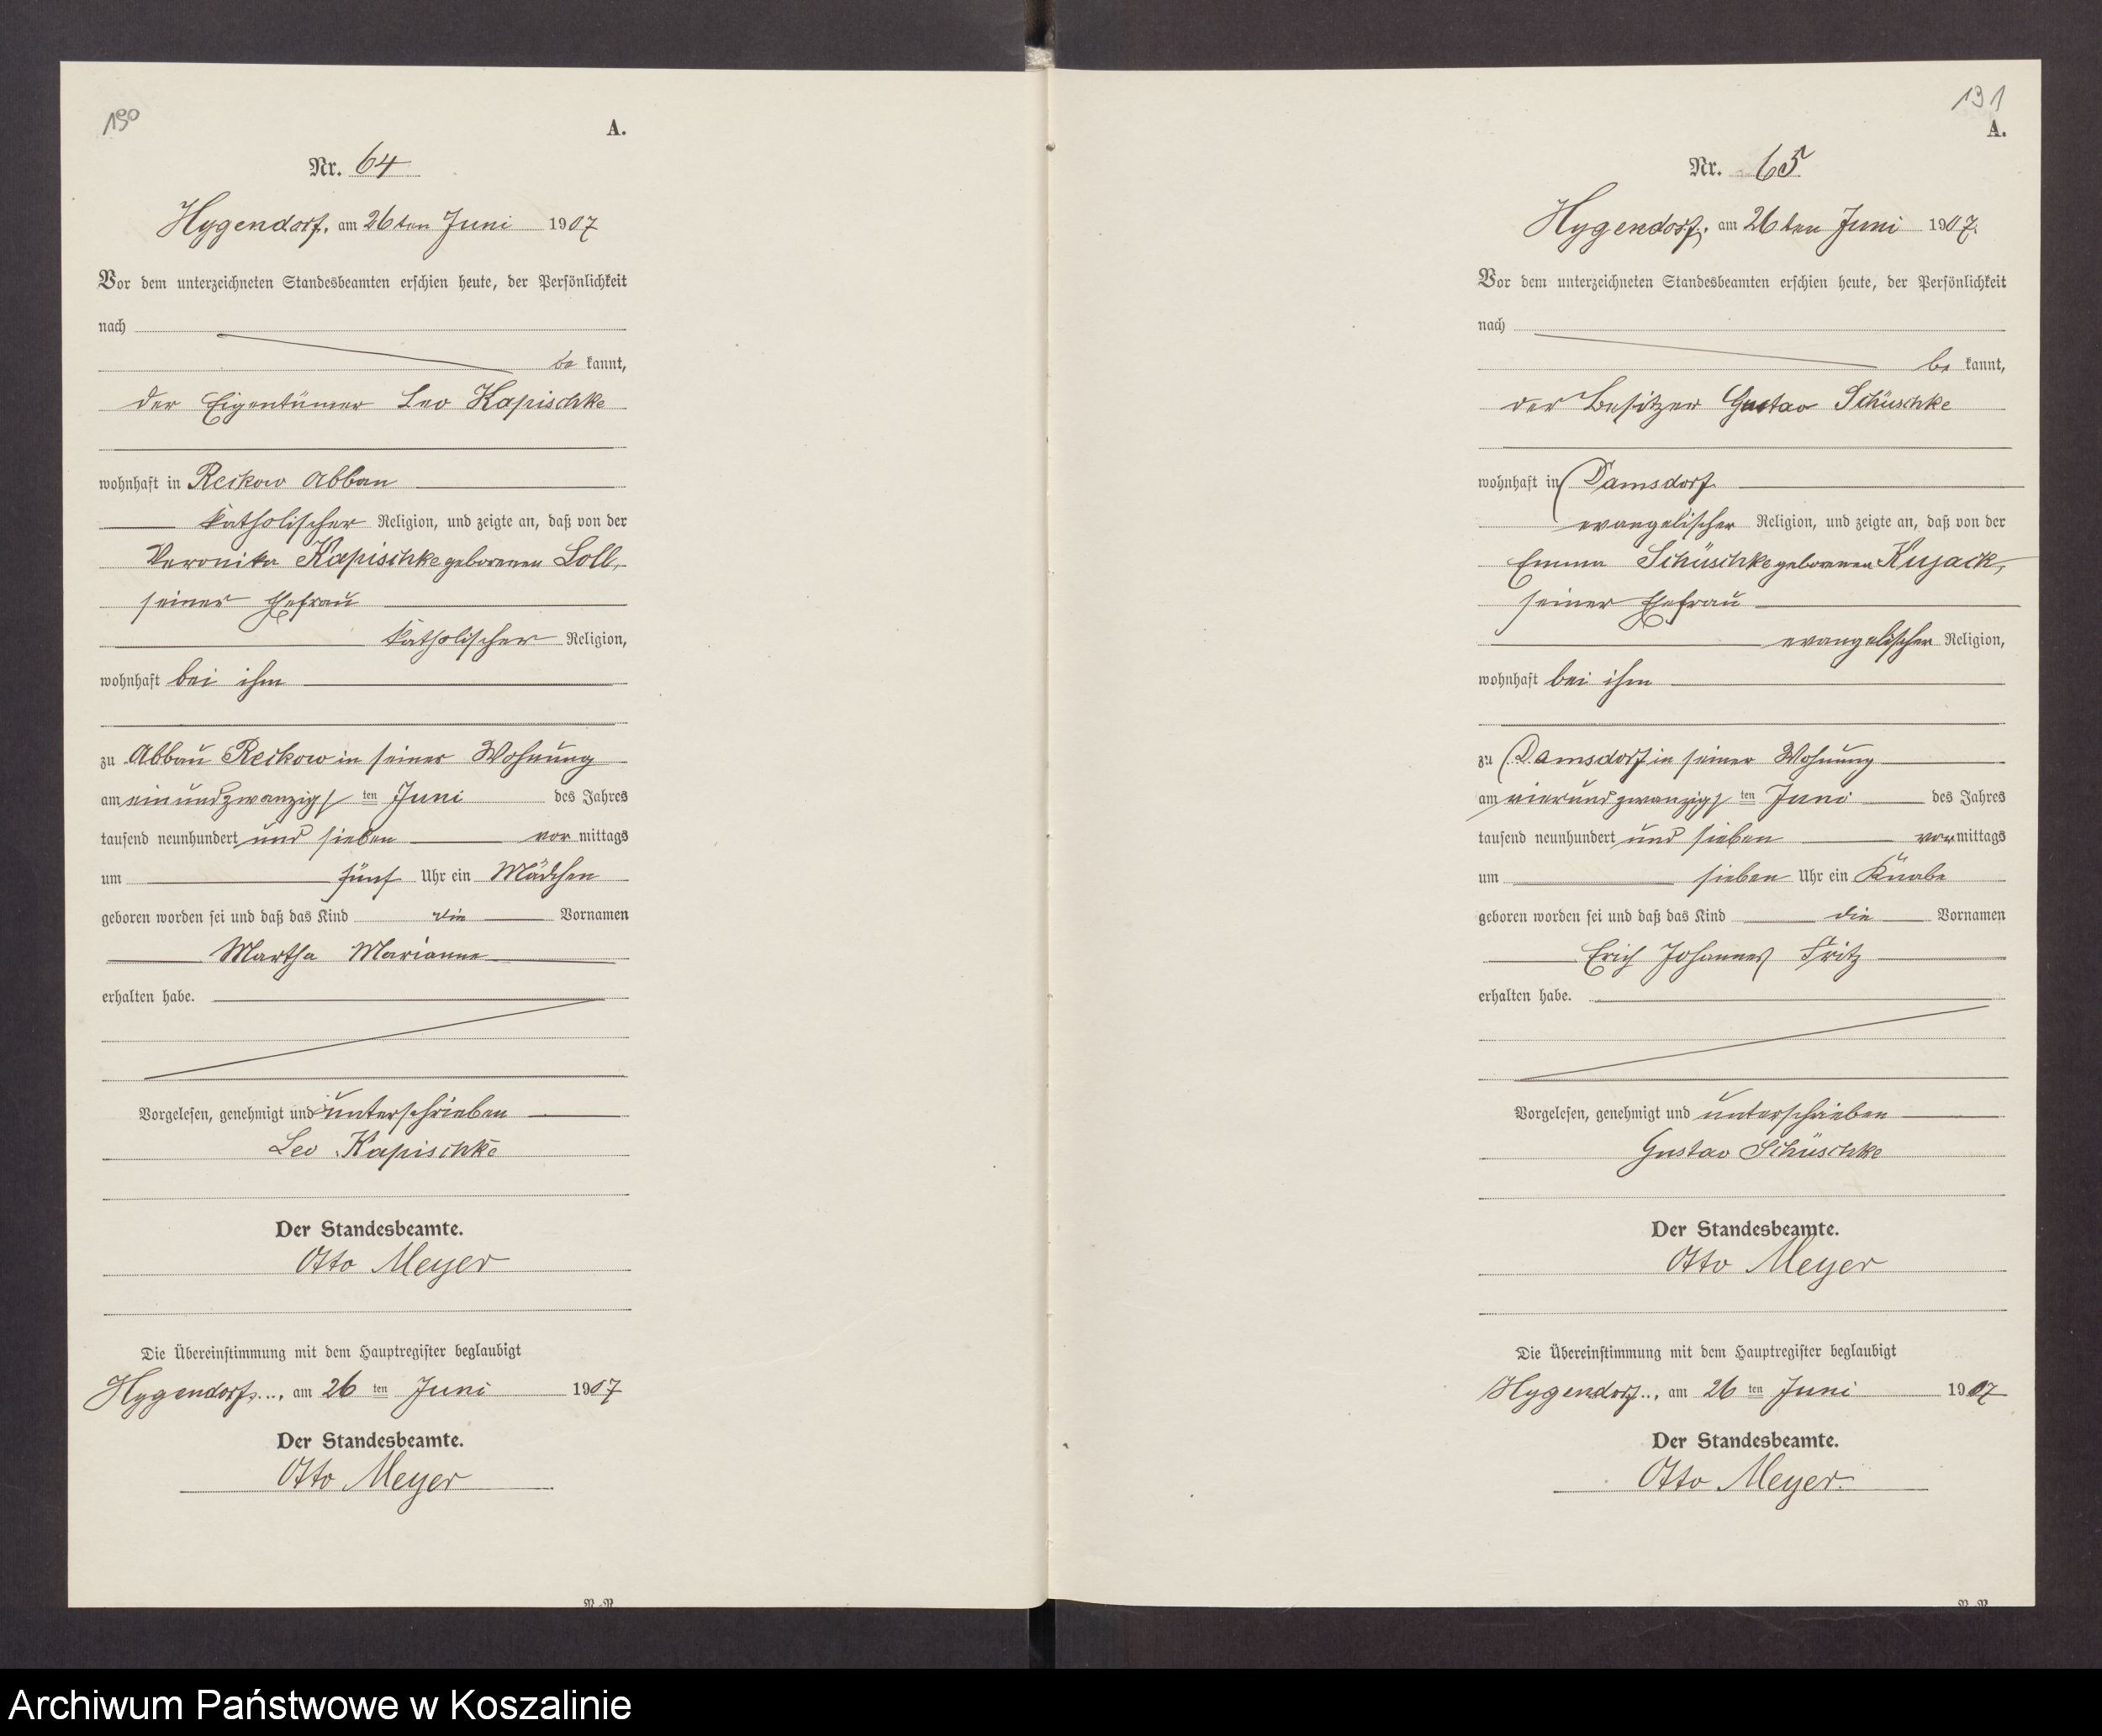 130
A.
Nr. 64
Hygendorf, am 26ten Juni 1907
Vor dem unterzeichneten Standesbeamten erschien heute, der Persönlichkeit
nach
be kannt,
der Eigentümer Leo Kapischke
wohnhaft in Reckow Abbau
katholischer Religion, und zeigte an, daß von der
Veronika Kapischke geborenen Loll,
seiner Ehefrau
katholischer Religion,
wohnhaft bei ihm
zu Abbau Reckow in seiner Wohnung
am einundzwanzigsten Juni des Jahres
tausend neunhundert und sieben vor mittags
um fünf Uhr ein Mädchen
geboren worden sei und daß das Kind die Vornamen
Martha Marianne
erhalten habe.
Vorgelesen, genehmigt und unterschrieben
Leo Kapischke
Der Standesbeamte.
Otto Meyer
Die Übereinstimmung mit dem Hauptregister beglaubigt
Hygendorf, am 26 ten Juni 1907
Der Standesbeamte.
Otto Meyer
131
A.
Nr. 65
Hygendorf, am 26ten Juni 1907.
Vor dem unterzeichneten Standesbeamten erschien heute, der Persönlichkeit
nach
be kannt,
der Besitzer Gustav Schüschke
wohnhaft in Damsdorf
evangelischer Religion, und zeigte an, daß von der
Emma Schüschke geborenen Kujack,
seiner Ehefrau
evangelischer Religion,
wohnhaft bei ihm
zu Damsdorf in seiner Wohnung
am vierundzwanzigsten Juni des Jahres
tausend neunhundert und sieben vor mittags
um sieben Uhr ein Knabe
geboren worden sei und daß das Kind die Vornamen
Erich Johannes Fritz
erhalten habe.
Vorgelesen, genehmigt und unterschrieben
Gustav Schüschke
Der Standesbeamte.
Otto Meyer
Die Übereinstimmung mit dem Hauptregister beglaubigt
Hygendorf, am 26 ten Juni 1907
Der Standesbeamte.
Otto Meyer.
Archiwum Państwowe w Koszalinie